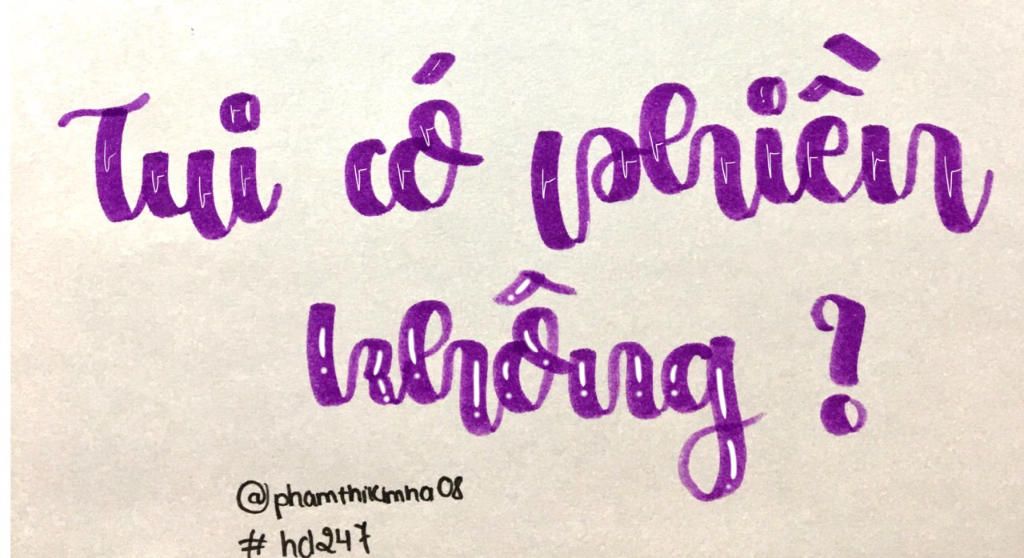 Tui có phiền
không ?
@phamthikimha08
# hd247